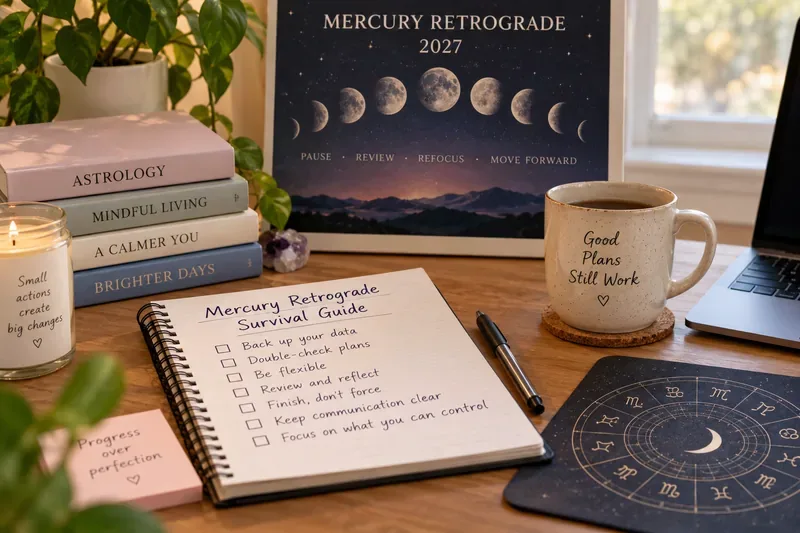 MERCURY RETROGRADE
2027
PAUSE · REVIEW · REFOCUS · MOVE FORWARD
ASTROLOGY
MINDFUL LIVING
A CALMER YOU
BRIGHTER DAYS
Small
actions
create
big changes
♡
Good
Plans
Still Work
♡
Mercury Retrograde
Survival Guide
☐ Back up your data
☐ Double-check plans
☐ Be flexible
☐ Review and reflect
☐ Finish, don't force
☐ Keep communication clear
☐ Focus on what you can control
Progress
over
perfection
♡